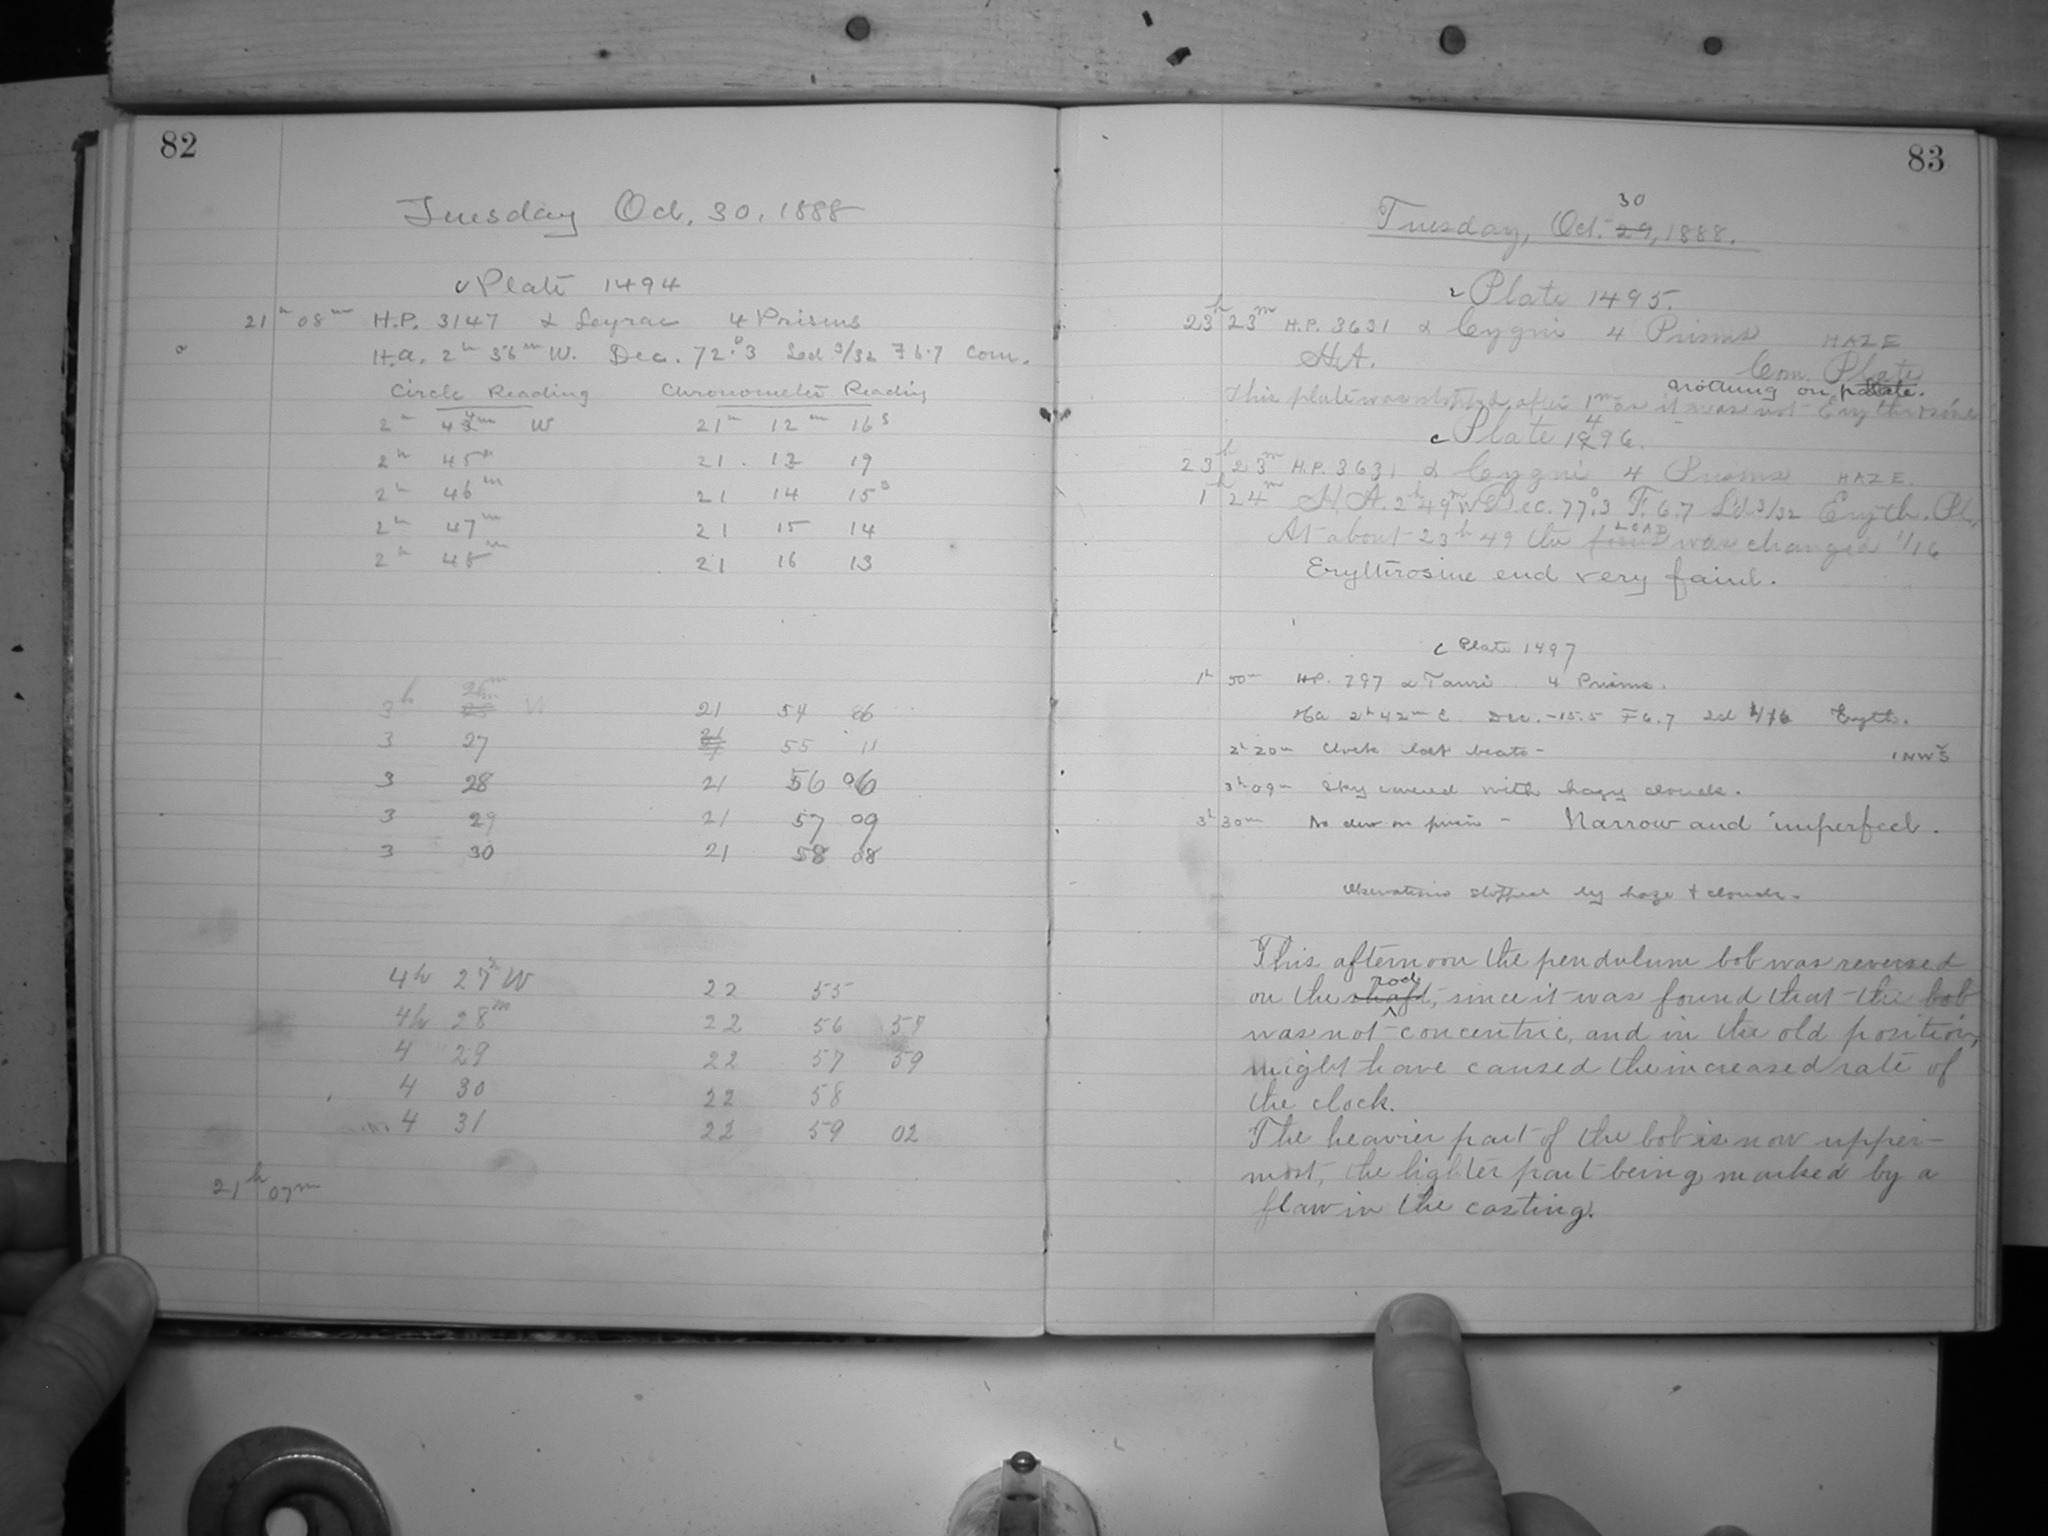 82
Tuesday Oct. 30, 1888
c Plate 1494
21h 08m H.P. 3147 α Lyrae 4 Prisms
H.A. 2h 36m W. Dec. 72.°3 Led 3/32 F 6.7 Com.
Circle Reading Chronometer Reading
2h 44m W 21h 12m 16s
2h 45m 21. 13 19
2h 46m 21 14 15s
2h 47m 21 15 14
2h 48m 21 16 13
3h 26m W 21 54 06
3 27 21 55 11
3 28 21 56 06
3 29 21 57 09
3 30 21 58 08
4h 27m W 22 55
4h 28m 22 56 57
4 29 22 57 59
4 30 22 58
4 31 22 59 02
21h 07m
83
30
Tuesday, Oct. 29, 1888.
c Plate 1495.
23h 23m H.P. 3631 α Cygni 4 Prisms HAZE
H.A. Com. Plate
nothing on plate.
This plate was stopped after 1m as it was not Erythrosine
c Plate 1496.
23h 23m H.P. 3631 α Cygni 4 Prisms HAZE.
1h 24m H.A. 2h 49m W Dec. 77.°3 F. 6.7 L'd 3/32 Eryth. Pl.
LOAD
At about 23h 49 the focus was changed 1/16
Erythrosine end very faint.
c Plate 1497
1h 50m H.P. 797 α Tauri 4 Prisms.
Ha 2h 42m E Dec. -15.5 F 6.7 Ld 1/16 Eryth.
2h 20m Clock lost beats - 1NWS
3h 09m Sky covered with hazy clouds.
3h 30m No dew on prism - Narrow and imperfect.
Observations stopped by haze & clouds.
This afternoon the pendulum bob was reversed
rod
on the shaft, since it was found that the bob
was not concentric, and in the old position,
might have caused the increased rate of
the clock.
The heavier part of the bob is now upper-
most, the lighter part being marked by a
flaw in the casting.